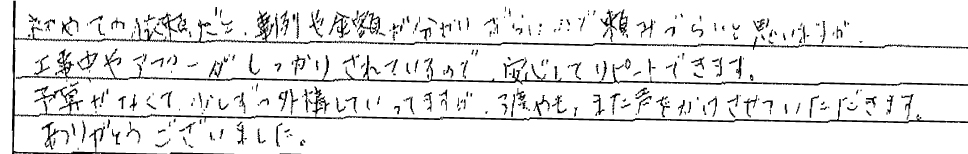 初めての依頼だと、事例や金額が分かりづらいので頼みづらいと思いますが、
工事中やアフターがしっかりされているので、安心してリピートできます。
予算がなくて、少しずつ外構していってますが、、また声をかけさせていただきます。
ありがとうございました。